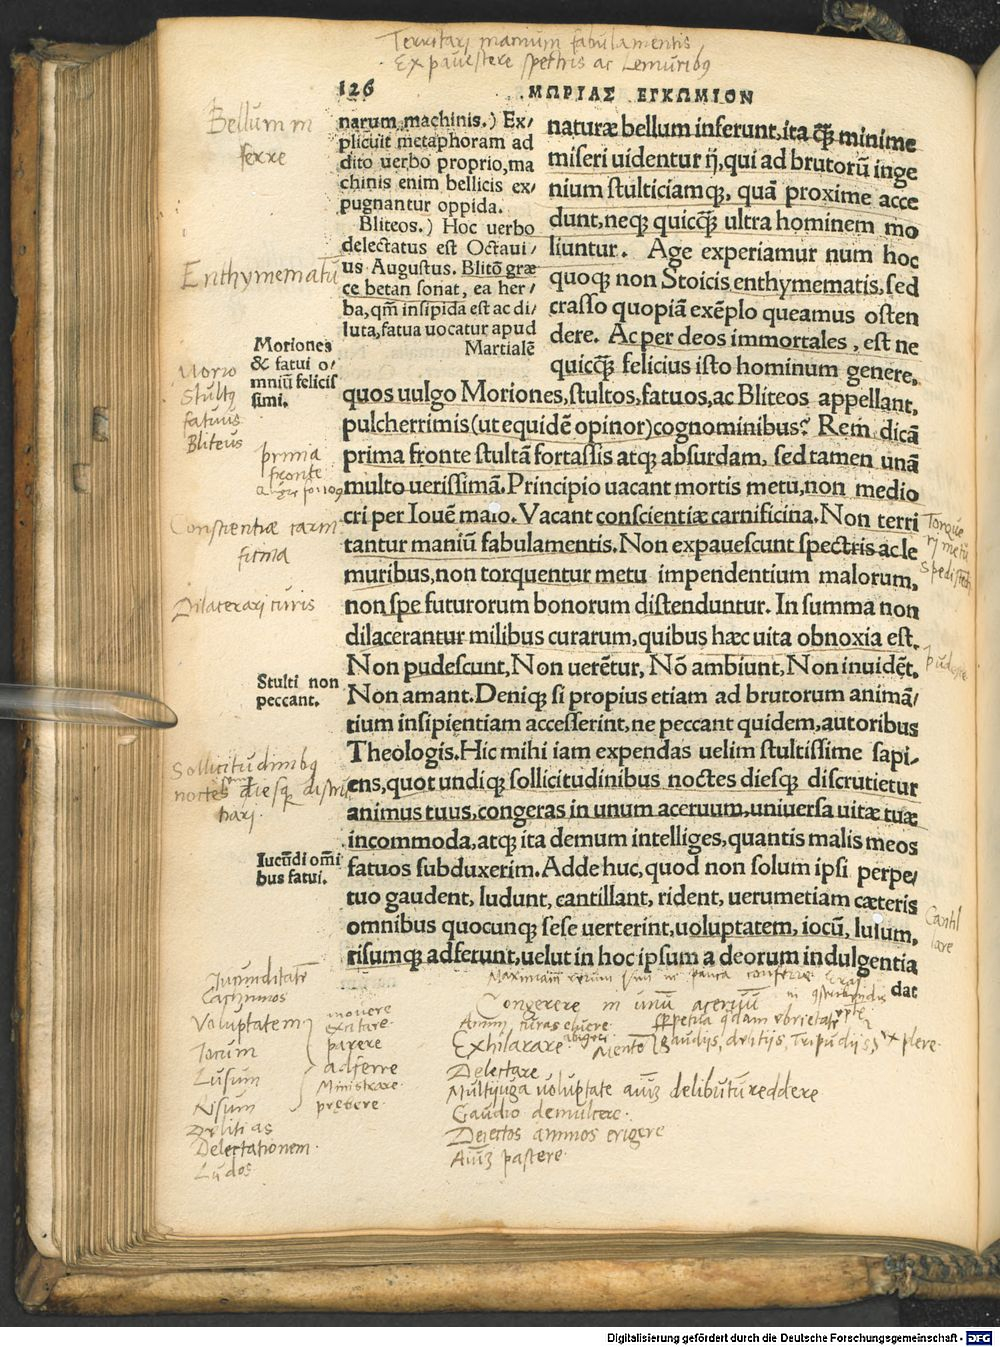 Territari manium fabulamentis
Expavescere spectris ac Lemuribꝰ
126
ΜΩΡΙΑΣ ΕΓΚΩΜΙΟΝ
Bellum in
ferre
narum machinis.) Ex/
plicuit metaphoram ad
dito uerbo proprio, ma
chinis enim bellicis ex/
pugnantur oppida.
Bliteos.) Hoc uerbo
delectatus est Octaui/
us Augustus. Blitõ græ
ce betan sonat, ea her/
ba, qm̃ insipida est ac di/
luta, fatua uocatur apud
Martialẽ
Enthymematũ
Moriones
& fatui o/
mniũ felicis
simi.
Morio
Stultꝰ
fatuus
Bliteus
prima
fronte
naturæ bellum inferunt, ita q̃ꝫ minime
miseri uidentur ij, qui ad brutorũ inge
nium stulticiamqꝫ, quã proxime acce
dunt, neqꝫ quicq̃ꝫ ultra hominem mo
liuntur. Age experiamur num hoc
quoqꝫ non Stoicis enthymematis, sed
crasso quopiã exẽplo queamus osten
dere. Ac per deos immortales, est ne
quicq̃ꝫ felicius isto hominum genere,
quos uulgo Moriones, stultos, fatuos, ac Bliteos appellant,
pulcherrimis (ut equidẽ opinor) cognominibus? Rem dicã
prima fronte stultã fortassis atqꝫ absurdam, sed tamen unã
multo uerissimã. Principio uacant mortis metu, non medio
cri per Iouẽ malo. Vacant conscientiæ carnificina. Non terri
tantur maniũ fabulamentis. Non expauescunt spectris ac le
muribus, non torquentur metu impendentium malorum,
non spe futurorum bonorum distenduntur. In summa non
dilacerantur milibus curarum, quibus hæc uita obnoxia est.
Non pudescunt, Non uerẽtur, Nõ ambiunt, Non inuidẽt.
Non amant. Deniqꝫ si propius etiam ad brutorum animã/
tium insipientiam accesserint, ne peccant quidem, autoribus
Theologis. Hic mihi iam expendas uelim stultissime sapi/
ens, quot undiqꝫ sollicitudinibus noctes diesqꝫ discrutietur
animus tuus, congeras in unum aceruum, uniuersa uitæ tuæ
incommoda, atqꝫ ita demum intelliges, quantis malis meos
fatuos subduxerim. Adde huc, quod non solum ipsi perpe/
tuo gaudent, ludunt, cantillant, rident, uerumetiam cæteris
omnibus quocunqꝫ sese uerterint, uoluptatem, iocũ, lusum,
risumqꝫ adferunt, uelut in hoc ipsum a deorum indulgentia
dat
Conscientiæ carni
ficina
Dilacerari curis
Stulti non
peccant.
Sollicitudinibꝰ
noctes diesqꝫ discru
tiari.
Iucũdi om̃i
bus fatui.
Torque
ri metu
Cantil
lare
Jucunditatẽ
Cachinnos
Voluptatem
Jocum
Lusum
Risum
Delitias
Delectationem.
Ludos
movere
excitare.
parere
adferre
Ministrare.
prebere.
Congerere in unũ acervũ
Exhilarare
Gaudijs, delitijs, Tripudijs, explere.
Delectare
Multijuga voluptate delibutũ reddere
Gaudio demulcere.
Deiectos animos erigere
pascere.
Digitalisierung gefördert durch die Deutsche Forschungsgemeinschaft - DFG